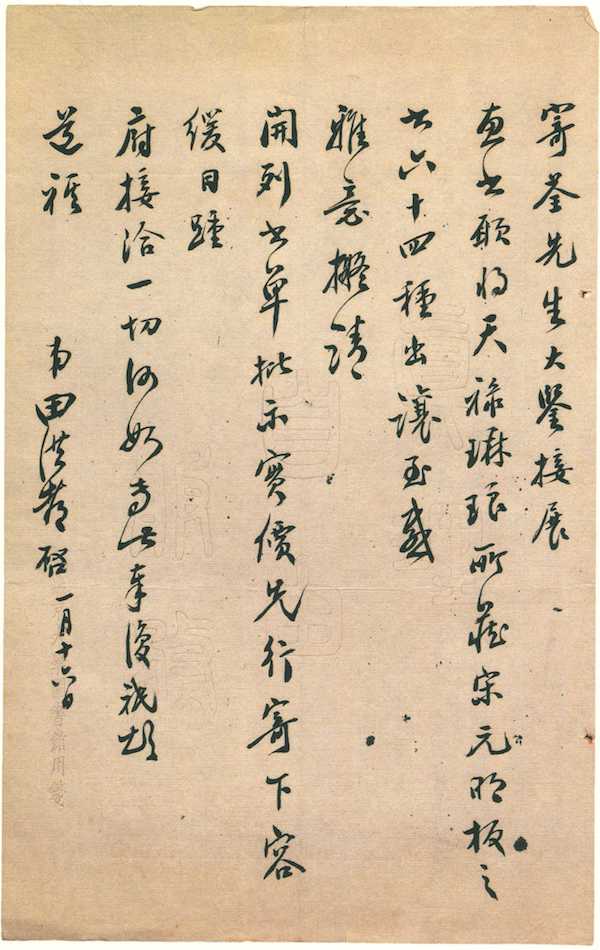 寄荃先生大鑒接展
惠書願將天祿琳琅所藏宋元明板之
書六十四種出讓至感
雅意擬請
開列書單批示實價先行寄下容
緩日踵
府接洽一切何如專此奉復祇頌
道祺
弟田洪都啓 一月十六日